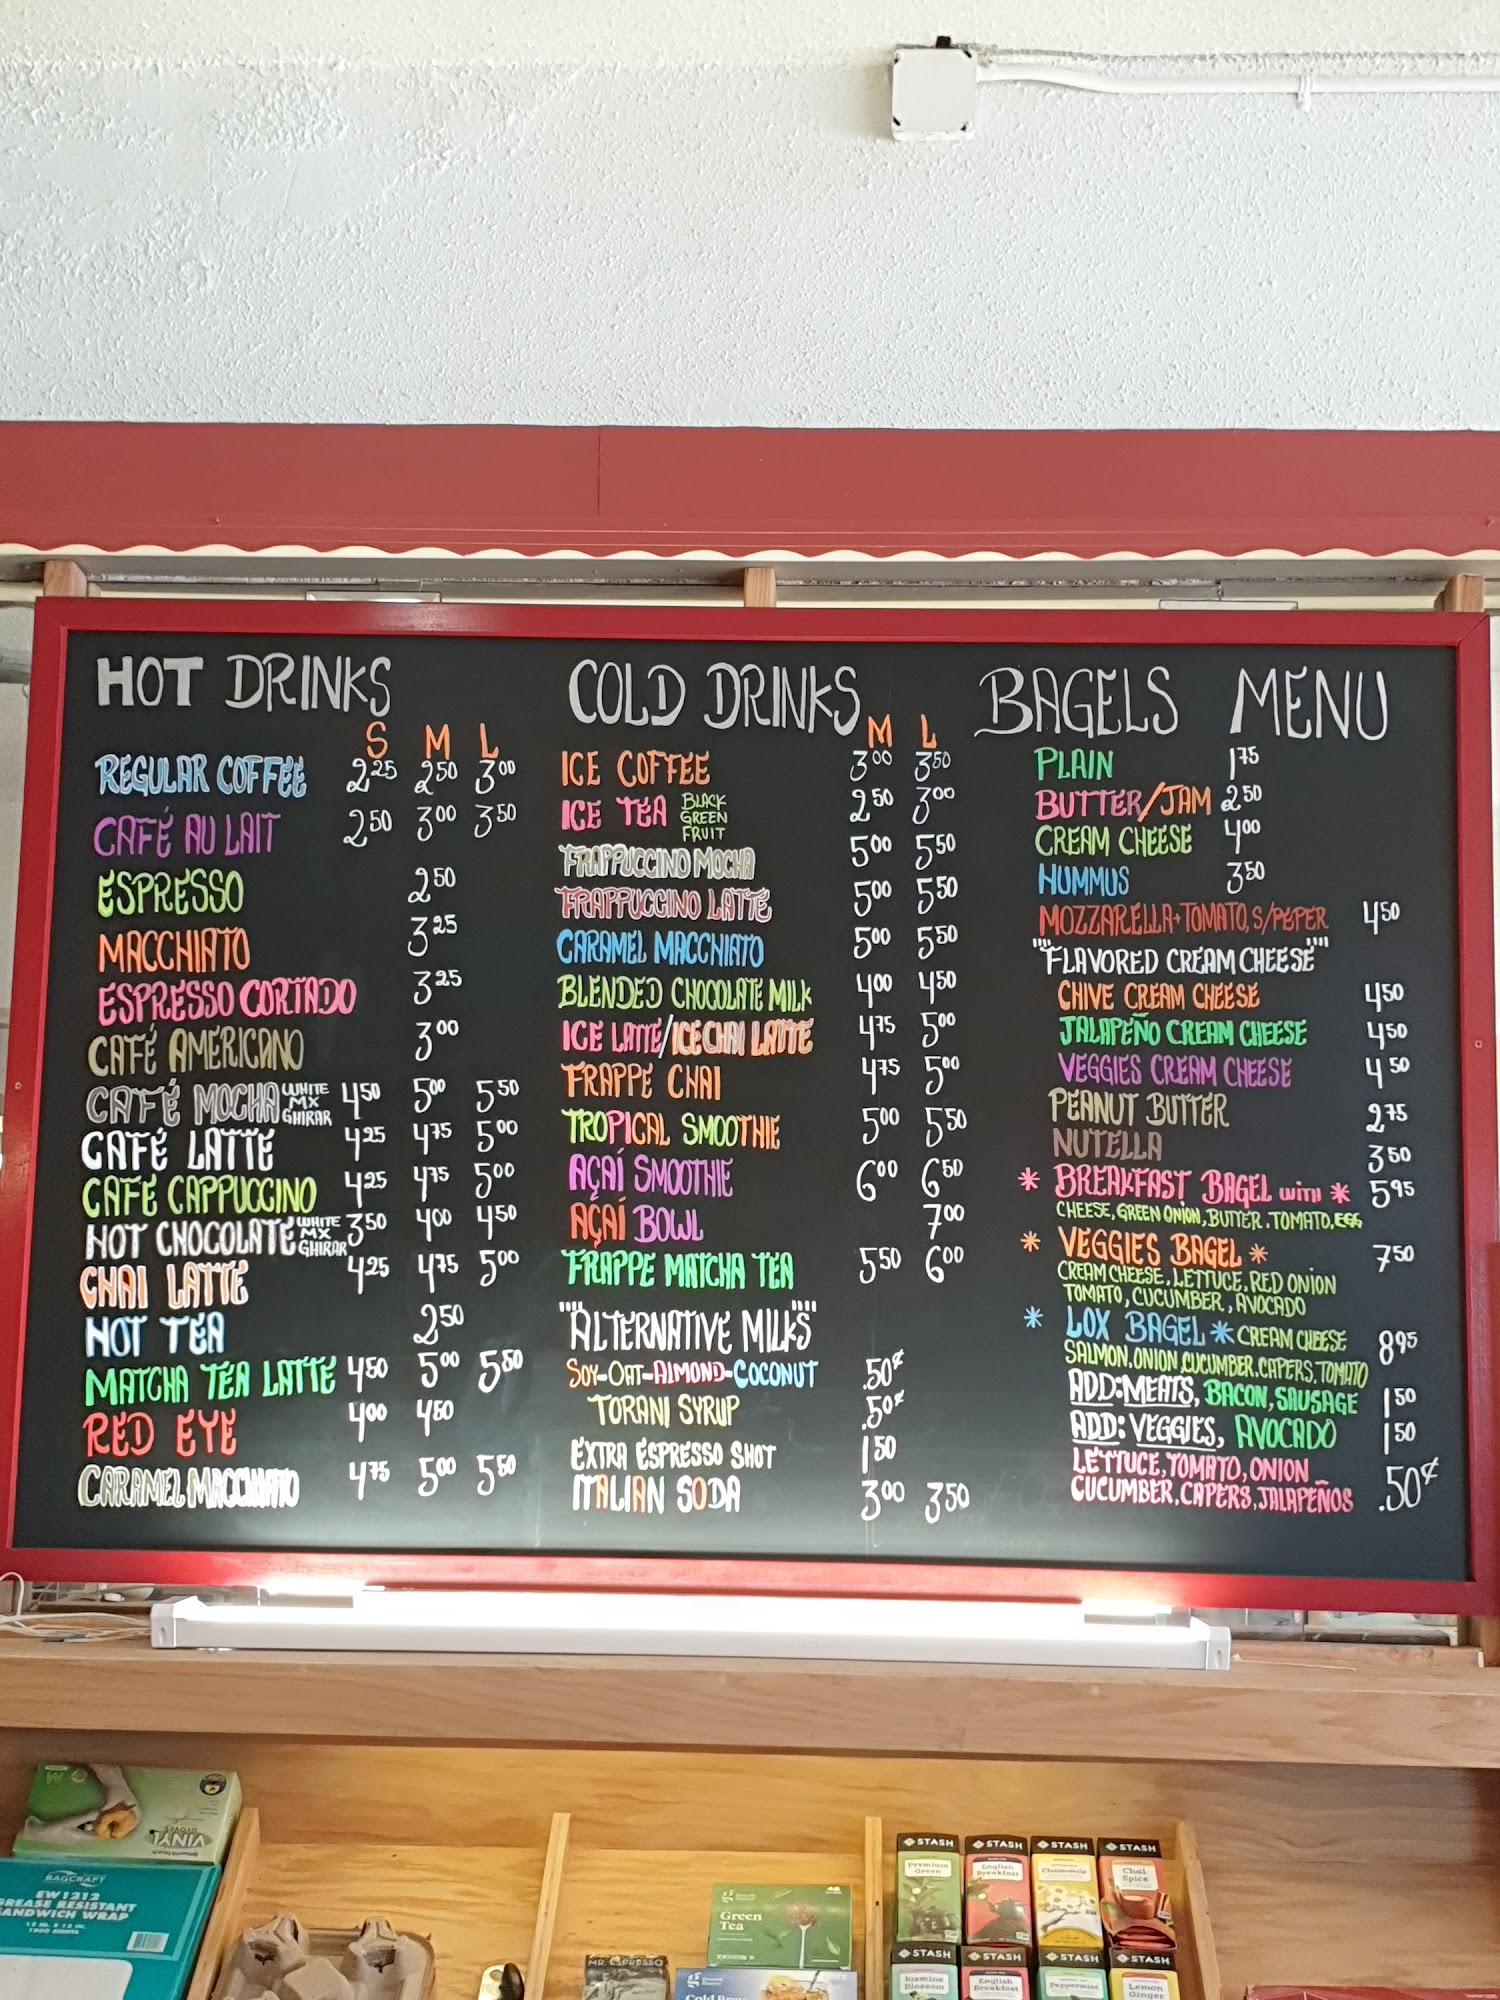 HOT DRINKS
S M L
REGULAR COFFEE 2.25 2.50 3.00
CAFÉ AU LAIT 2.50 3.00 3.50
ESPRESSO 2.50
MACCHIATO 3.25
ESPRESSO CORTADO 3.25
CAFÉ AMERICANO 3.00
CAFÉ MOCHA WHITE MX GHIRAR 4.50 5.00 5.50
CAFÉ LATTE 4.25 4.75 5.00
CAFÉ CAPPUCCINO 4.25 4.75 5.00
HOT CHOCOLATE WHITE MX GHIRAR 3.50 4.00 4.50
CHAI LATTE 4.25 4.75 5.00
HOT TEA 2.50
MATCHA TEA LATTE 4.50 5.00 5.50
RED EYE 4.00 4.50
CARAMEL MACCHIATO 4.75 5.00 5.50
COLD DRINKS
M L
ICE COFFEE 3.00 3.50
ICE TEA BLACK GREEN FRUIT 2.50 3.00
FRAPPUCCINO MOCHA 5.00 5.50
FRAPPUCCINO LATTE 5.00 5.50
CARAMEL MACCHIATO 5.00 5.50
BLENDED CHOCOLATE MILK 4.00 4.50
ICE LATTE/ICE CHAI LATTE 4.75 5.00
FRAPPE CHAI 4.75 5.00
TROPICAL SMOOTHIE 5.00 5.50
AÇAÍ SMOOTHIE 6.00 6.50
AÇAÍ BOWL 7.00
FRAPPE MATCHA TEA 5.50 6.00
""ALTERNATIVE MILKS""
SOY-OAT-ALMOND-COCONUT .50¢
TORANI SYRUP .50¢
EXTRA ESPRESSO SHOT 1.50
ITALIAN SODA 3.00 3.50
BAGELS MENU
PLAIN 1.75
BUTTER/JAM 2.50
CREAM CHEESE 4.00
HUMMUS 3.50
MOZZARELLA+TOMATO, S/PEPER 4.50
""FLAVORED CREAM CHEESE""
CHIVE CREAM CHEESE 4.50
JALAPEÑO CREAM CHEESE 4.50
VEGGIES CREAM CHEESE 4.50
PEANUT BUTTER 2.75
NUTELLA 3.50
* BREAKFAST BAGEL WITH * 5.95
CHEESE, GREEN ONION, BUTTER, TOMATO, EGG
* VEGGIES BAGEL * 7.50
CREAM CHEESE, LETTUCE, RED ONION
TOMATO, CUCUMBER, AVOCADO
* LOX BAGEL * CREAM CHEESE 8.95
SALMON, ONION, CUCUMBER, CAPERS, TOMATO
ADD: MEATS, BACON, SAUSAGE 1.50
ADD: VEGGIES, AVOCADO 1.50
LETTUCE, TOMATO, ONION
CUCUMBER, CAPERS, JALAPEÑOS .50¢
VINYL
GLOVES
BAGCRAFT
EW1212
GREASE RESISTANT
SANDWICH WRAP
MR. ESPRESSO
Green
Tea
Cold Brew
STASH
Premium
Green
STASH
English
Breakfast
STASH
Chamomile
STASH
Chai
Spice
STASH
Jasmine
Blossom
STASH
English
Breakfast
STASH
Peppermint
STASH
Lemon
Ginger